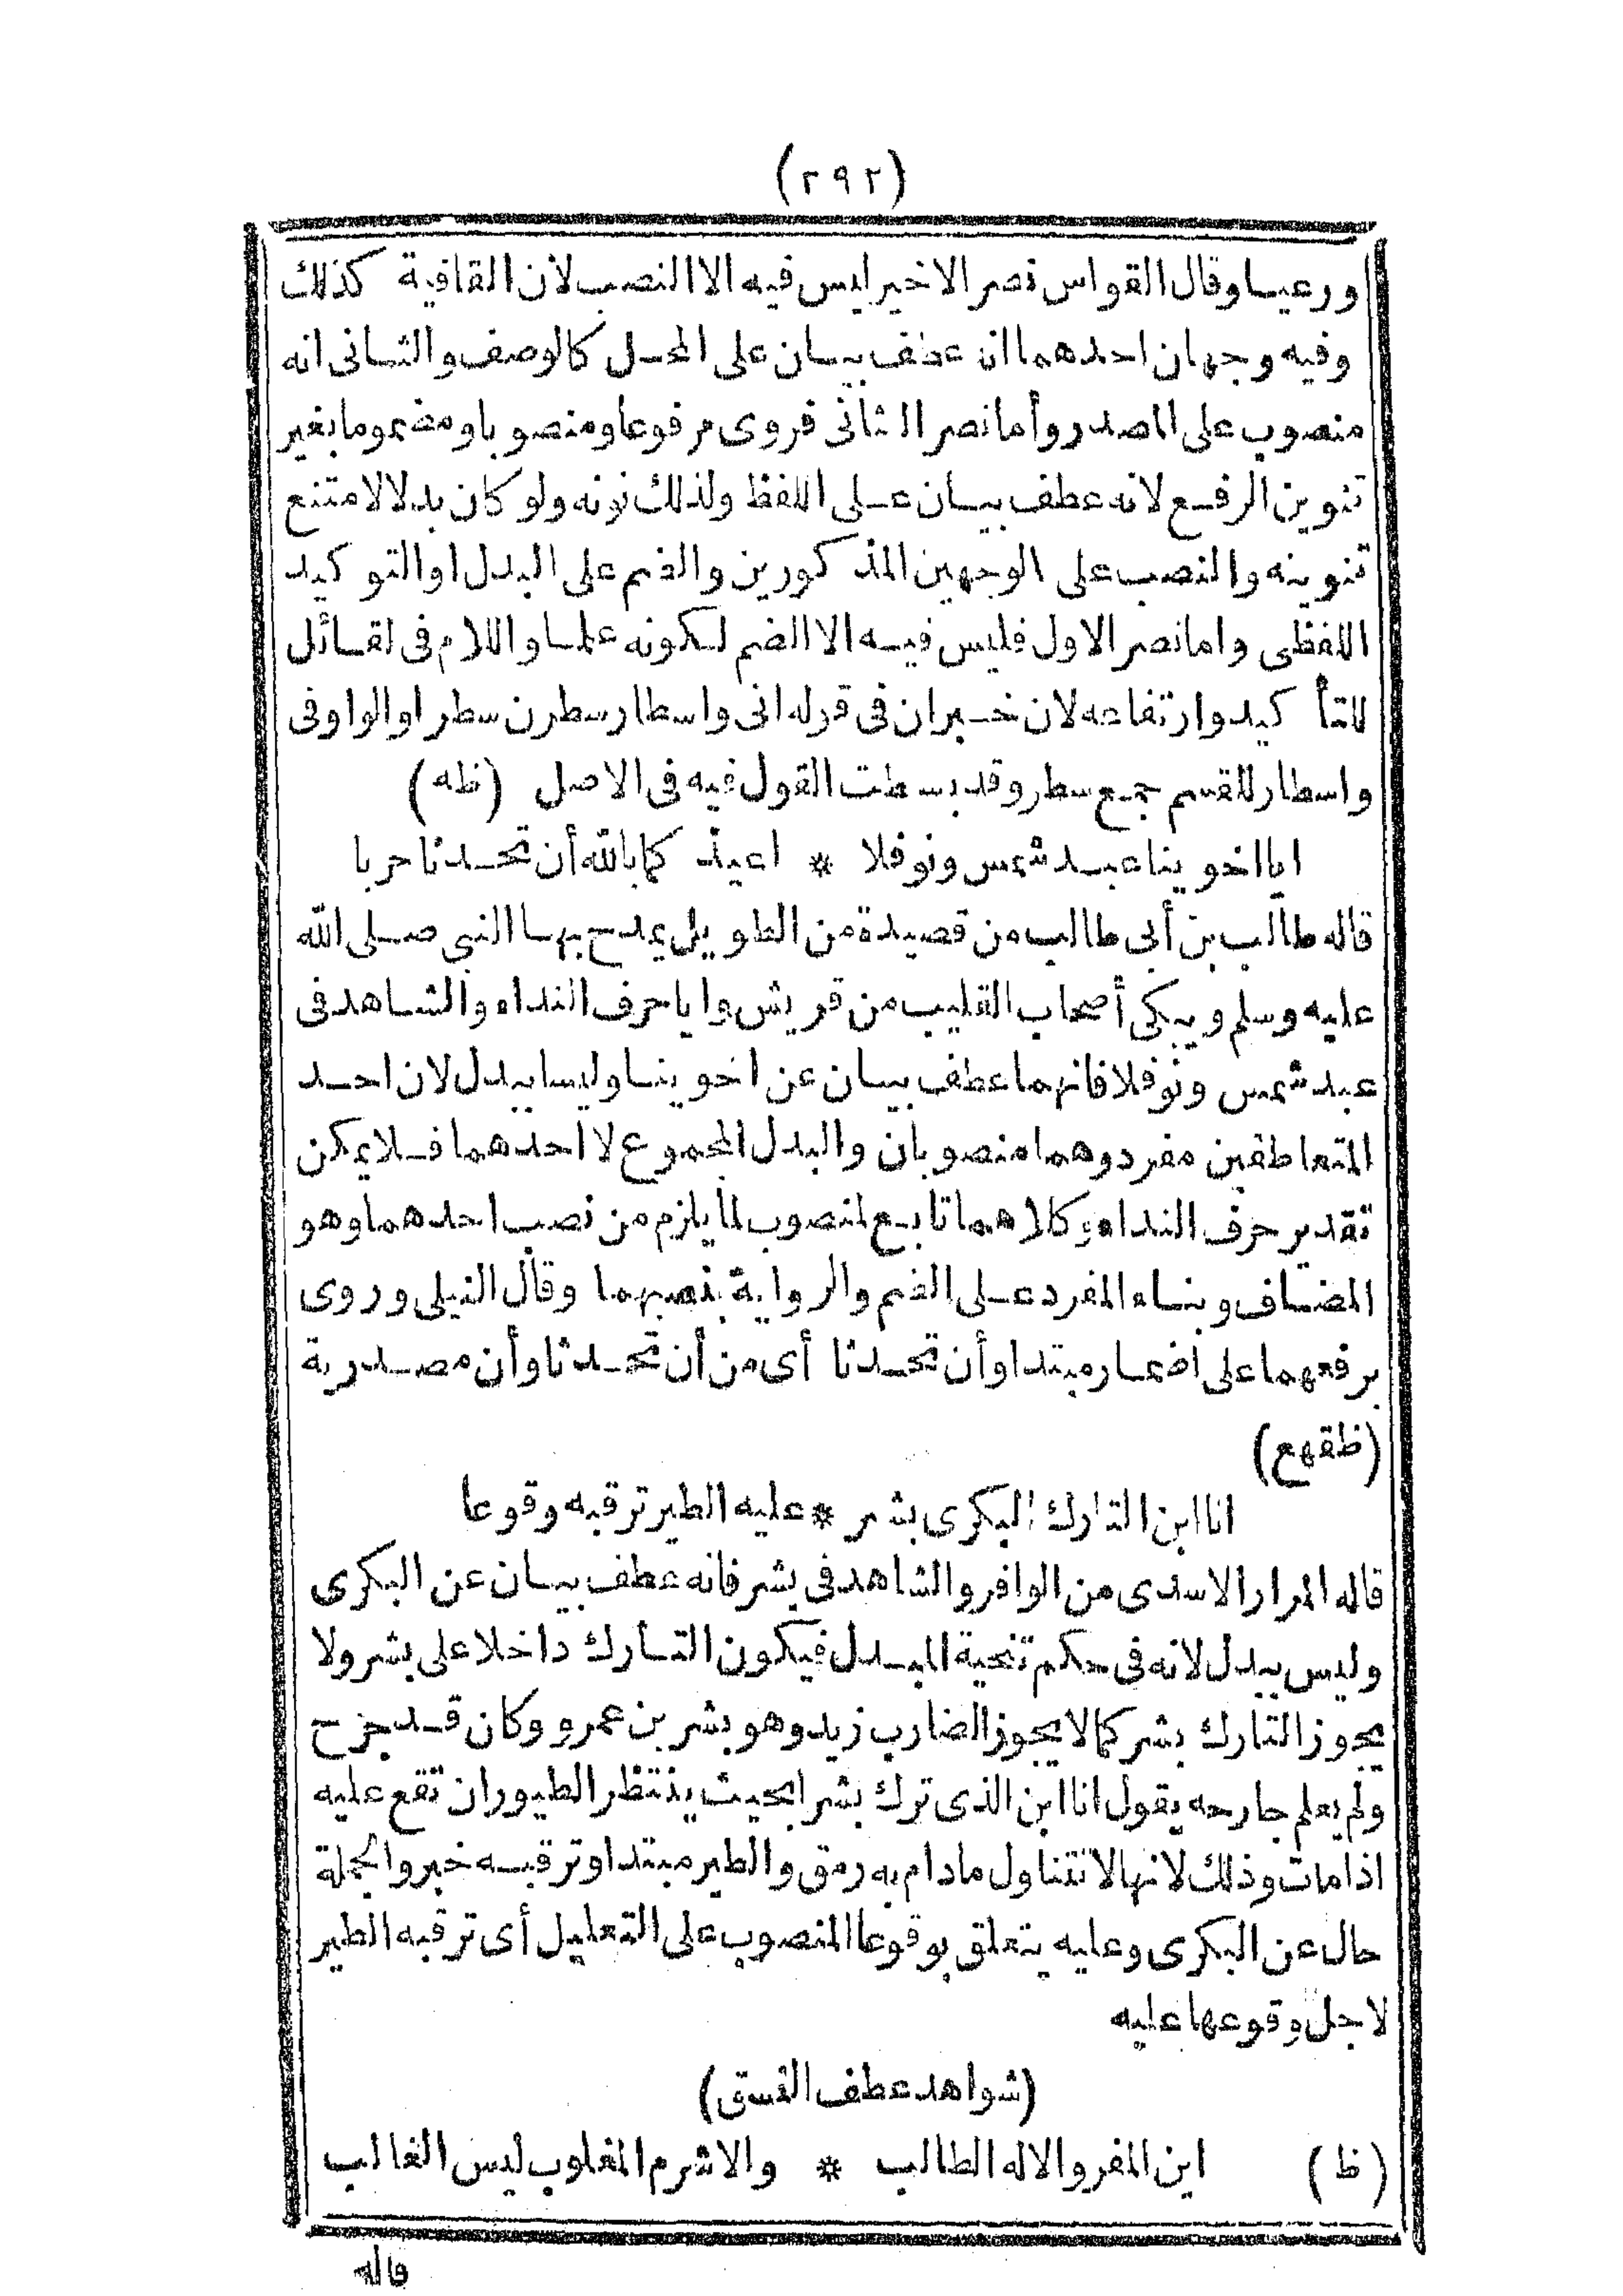 (٢٩٢)
ورعيا وقال القواس نصر الاخير ليس فيه الا النصب لان القافية كذلك
وفيه وجهان احدهما انه عطف بيان على المحل كالوصف والثانى انه
منصوب على المصدر وأما نصر الثانى فروى مرفوعا ومنصوبا ومضموما بغير
تنوين الرفع لانه عطف بيان على اللفظ ولذلك نونه ولو كان بدلا لامتنع
تنوينه والنصب على الوجهين المذكورين والضم على البدل او التوكيد
اللفظى واما نصر الاول فليس فيه الا الضم لكونه علما واللام فى لقائل
للتأكيد وارتفاعه لان خبر ان فى قوله انى واسطار سطرن سطرا والواو فى
واسطار للقسم جمع سطر وقد بسطت القول فيه فى الاصل (ظه)
ايا اخوينا عبد شمس ونوفلا * اعيذكما بالله أن تحدثا حربا
قاله طالب بن أبى طالب من قصيدة من الطويل يمدح بها النبى صلى الله
عليه وسلم ويبكى أصحاب القليب من قريش وايا حرف النداء والشاهد فى
عبد شمس ونوفلا فانهما عطف بيان عن اخوينا وليسا ببدل لان احد
المتعاطفين مفرد وهما منصوبان والبدل المجموع لا احدهما فلا يمكن
تقدير حرف النداء وكلاهما تابع لمنصوب لما يلزم من نصب احدهما وهو
المضاف وبناء المفرد على الضم والرواية بنصبهما وقال النيلى وروى
برفعهما على اضمار مبتدا وأن تحدثا أى من أن تحدثا وأن مصدرية
(ظقهع)
انا ابن التارك البكرى بشر * عليه الطير ترقبه وقوعا
قاله المرار الاسدى من الوافر والشاهد فى بشر فانه عطف بيان عن البكرى
وليس ببدل لانه فى حكم تنحية المبدل فيكون التارك داخلا على بشر ولا
يجوز التارك بشر كما لا يجوز الضارب زيد وهو بشر بن عمرو وكان قد جرح
ولم يعلم جارحه يقول انا ابن الذى ترك بشرا بحيث ينتظر الطيور ان تقع عليه
اذا مات وذلك لانها لا تتناول مادام به رمق والطير مبتدا وترقبه خبر والجملة
حال عن البكرى وعليه يتعلق بوقوعا المنصوب على التعليل أى ترقبه الطير
لاجل وقوعها عليه
(شواهد عطف النسق)
(ظ) اين المفر والاله الطالب * والاشرم المغلوب ليس الغالب
قاله